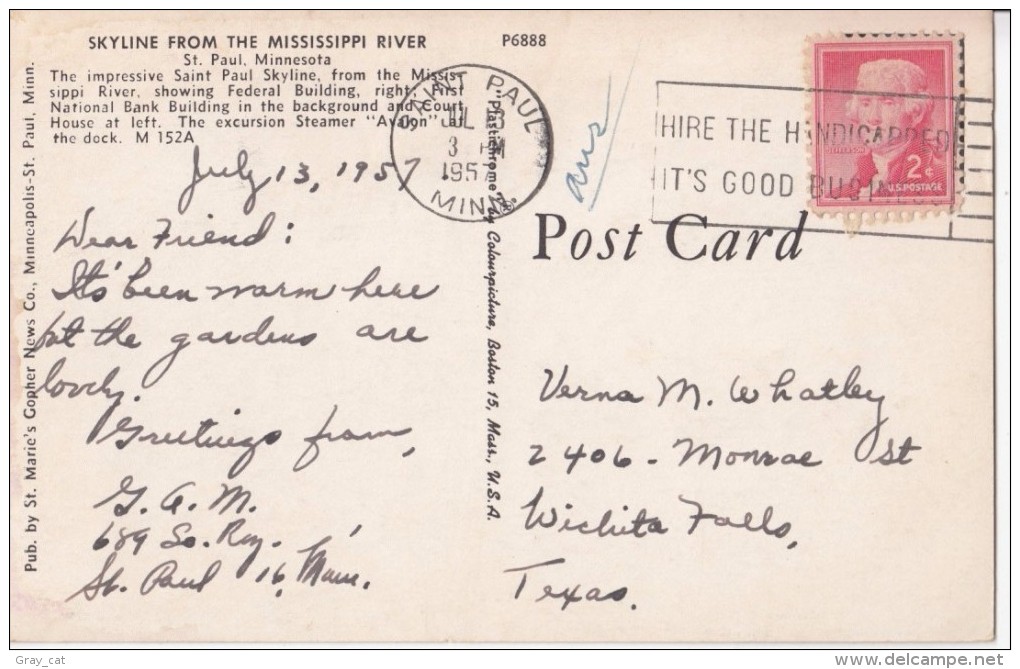 SKYLINE FROM THE MISSISSIPPI RIVER
St. Paul, Minnesota
The impressive Saint Paul Skyline, from the Missis-
sippi River, showing Federal Building, right; First
National Bank Building in the background and Court
House at left. The excursion Steamer "Avalon" at
the dock. M 152A
P6888
Pub. by St. Marie's Gopher News Co., Minneapolis-St. Paul, Minn.
July 13, 1957
Dear Friend:
It's been warm here
but the gardens are
lovely.
Greetings from,
G. A. M.
689 So. Roy.
St. Paul 16, Minn.
SAINT PAUL
JUL 13
3 PM
1957
MINN.
"Plastichrome" by Colourpicture, Boston 15, Mass., U.S.A.
ans
HIRE THE HANDICAPPED
IT'S GOOD BUSINESS
JEFFERSON
2¢
U.S. POSTAGE
Post Card
Verna M. Whatley
2406 - Monroe St
Wichita Falls,
Texas.
Gray_cat
http://www.delcampe.net